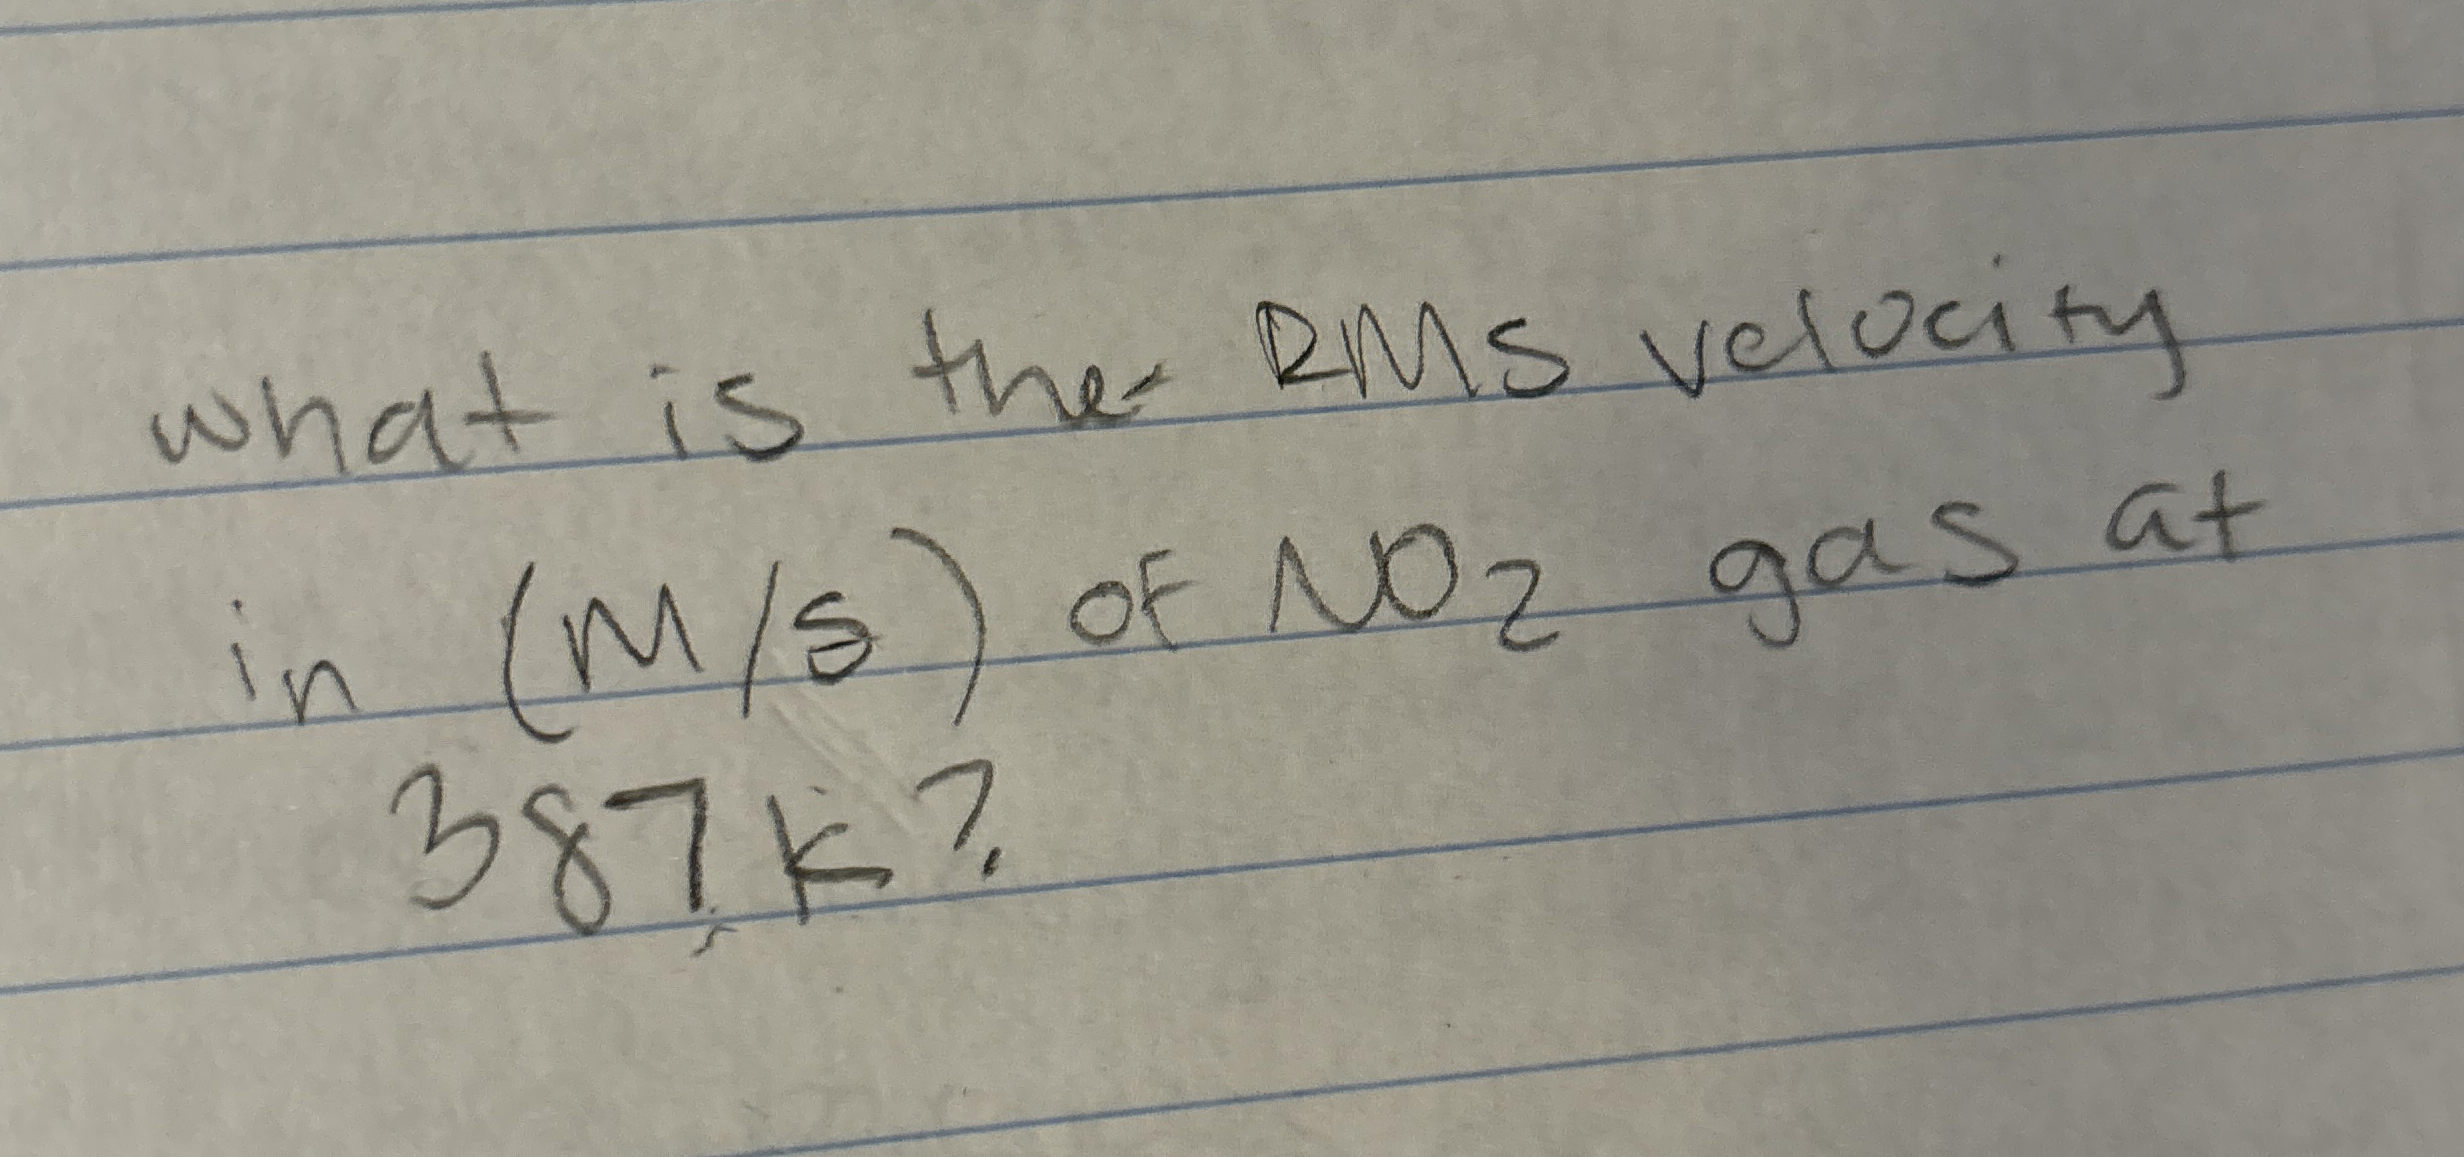 what is the RMS velocity
in (M/S) of NO₂ gas at
387 K?